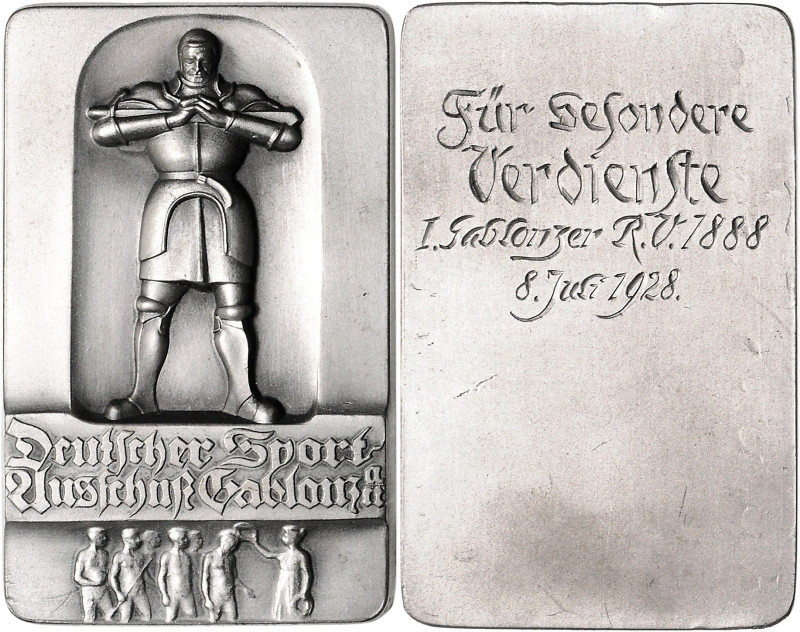 Deutscher Sport-
Ausschuß Gablonz a/N
Für besondere
Verdienste
I. Gablonzer R.V. 1888
8. Juli 1928.